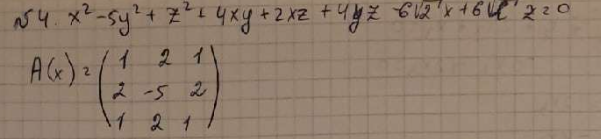 №4. x² - 5y² + z² + 4xy + 2xz + 4yz - 6√2 x + 6√2 z = 0
A(x) = ( 1 2 1
2 -5 2
1 2 1 )